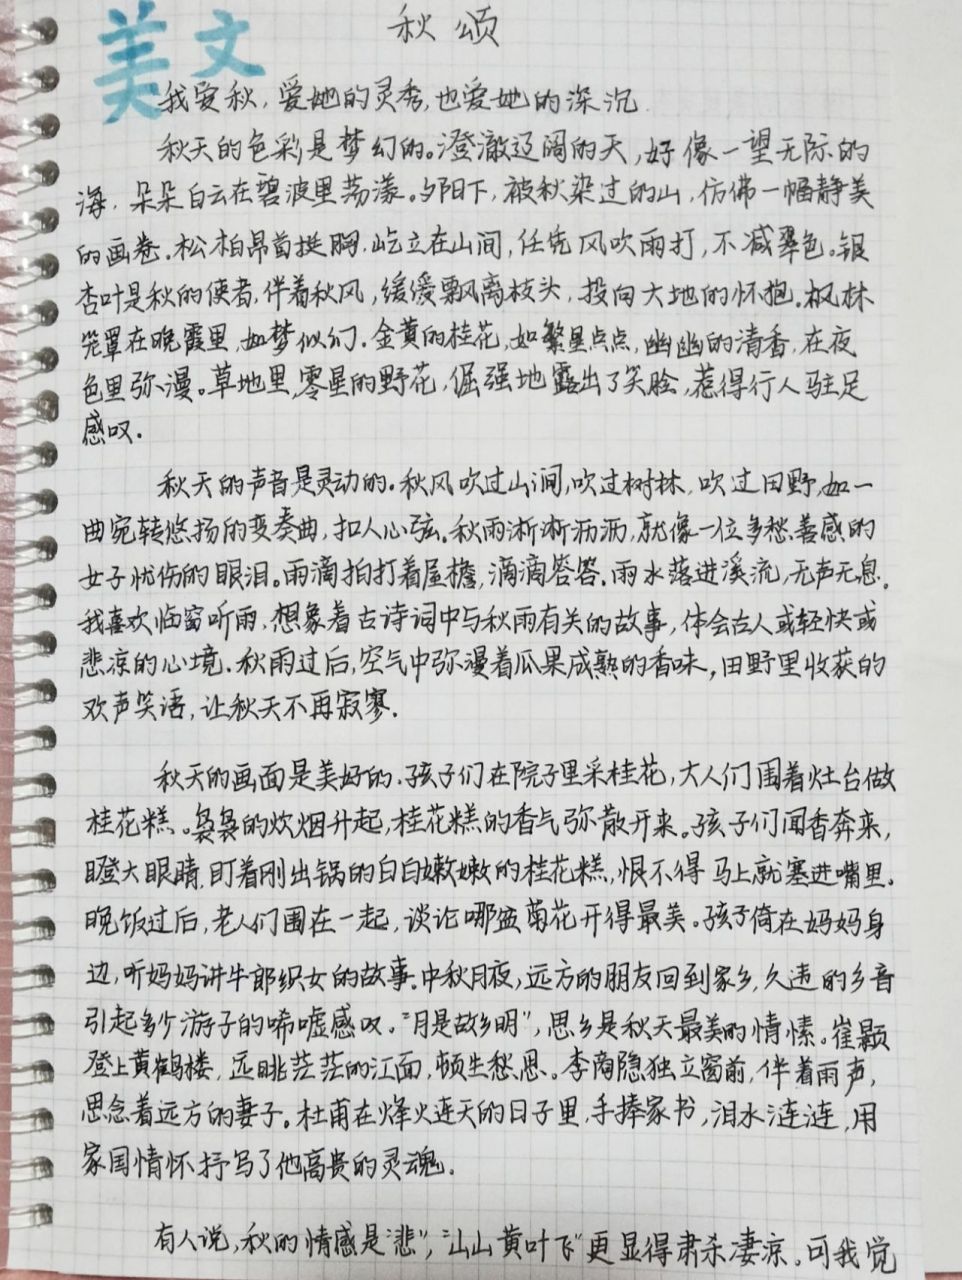 美文
秋颂
我爱秋,爱她的灵秀,也爱她的深沉
秋天的色彩是梦幻的。澄澈辽阔的天,好像一望无际的
海,朵朵白云在碧波里荡漾。夕阳下,被秋染过的山,仿佛一幅静美
的画卷.松柏昂首挺胸,屹立在山间,任凭风吹雨打,不减翠色。银
杏叶是秋的使者,伴着秋风,缓缓飘离枝头,投向大地的怀抱.枫林
笼罩在晚霞里,如梦似幻.金黄的桂花,如繁星点点,幽幽的清香,在夜
色里弥漫。草地里,零星的野花,倔强地露出了笑脸,惹得行人驻足
感叹.
秋天的声音是灵动的.秋风吹过山涧,吹过树林,吹过田野,如一
曲宛转悠扬的变奏曲,扣人心弦.秋雨淅淅沥沥,就像一位多愁善感的
女子忧伤的眼泪。雨滴拍打着屋檐,滴滴答答.雨水落进溪流,无声无息.
我喜欢临窗听雨,想象着古诗词中与秋雨有关的故事,体会古人或轻快或
悲凉的心境.秋雨过后,空气中弥漫着瓜果成熟的香味,田野里收获的
欢声笑语,让秋天不再寂寥.
秋天的画面是美好的.孩子们在院子里采桂花,大人们围着灶台做
桂花糕。袅袅的炊烟升起,桂花糕的香气弥散开来。孩子们闻香奔来,
瞪大眼睛,盯着刚出锅的白白嫩嫩的桂花糕,恨不得马上就塞进嘴里.
晚饭过后,老人们围在一起,谈论哪盆菊花开得最美。孩子倚在妈妈身
边,听妈妈讲牛郎织女的故事.中秋月夜,远方的朋友回到家乡,久违的乡音
引起多少游子的唏嘘感叹。"月是故乡明",思乡是秋天最美的情愫。崔颢
登上黄鹤楼,远眺茫茫的江面,顿生愁思。李商隐独立窗前,伴着雨声,
思念着远方的妻子。杜甫在烽火连天的日子里,手捧家书,泪水涟涟,用
家国情怀抒写了他高贵的灵魂.
有人说,秋的情感是"悲","山山黄叶飞"更显得肃杀凄凉。可我觉